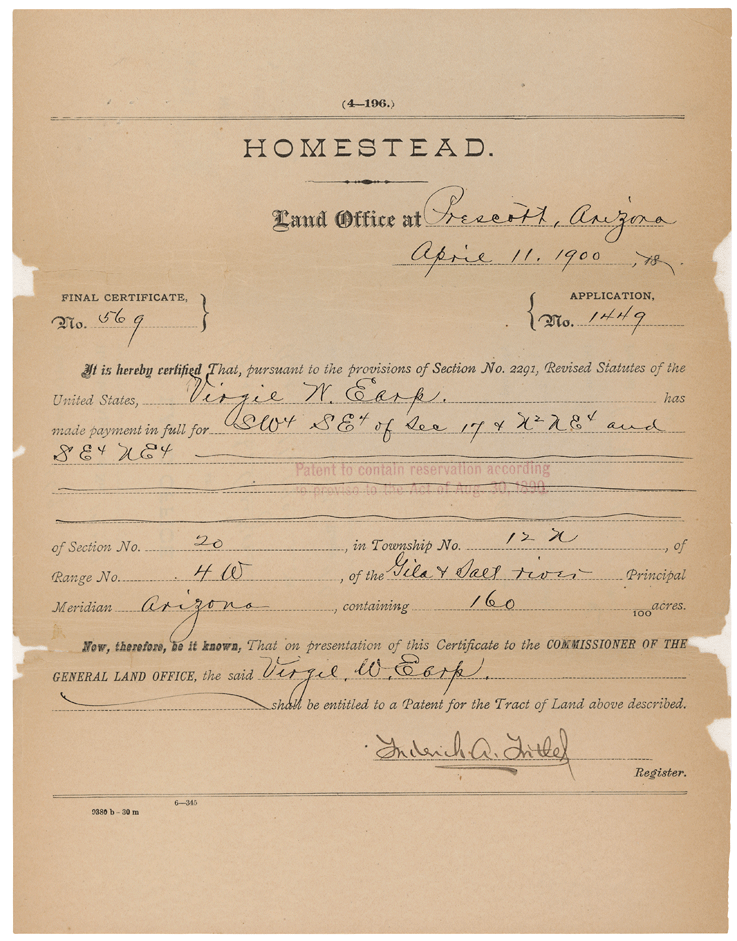 (4—196.)
HOMESTEAD.
Land Office at Prescott, Arizona
April 11. 1900 , 18 .
FINAL CERTIFICATE, No. 569
APPLICATION, No. 1449
It is hereby certified That, pursuant to the provisions of Section No. 2291, Revised Statutes of the
United States, Virgil W. Earp. has
made payment in full for SW4 SE4 of Sec 17 & N2 NE4 and
SE4 NE4
Patent to contain reservation according
to proviso to the Act of Aug. 30, 1890.
of Section No. 20 , in Township No. 12 N , of
Range No. 4 W , of the Gila & Salt river Principal
Meridian Arizona , containing 160 /100 acres.
Now, therefore, be it known, That on presentation of this Certificate to the COMMISSIONER OF THE
GENERAL LAND OFFICE, the said Virgil. W. Earp.
shall be entitled to a Patent for the Tract of Land above described.
A.
Register.
6—345
9380 b - 30 m